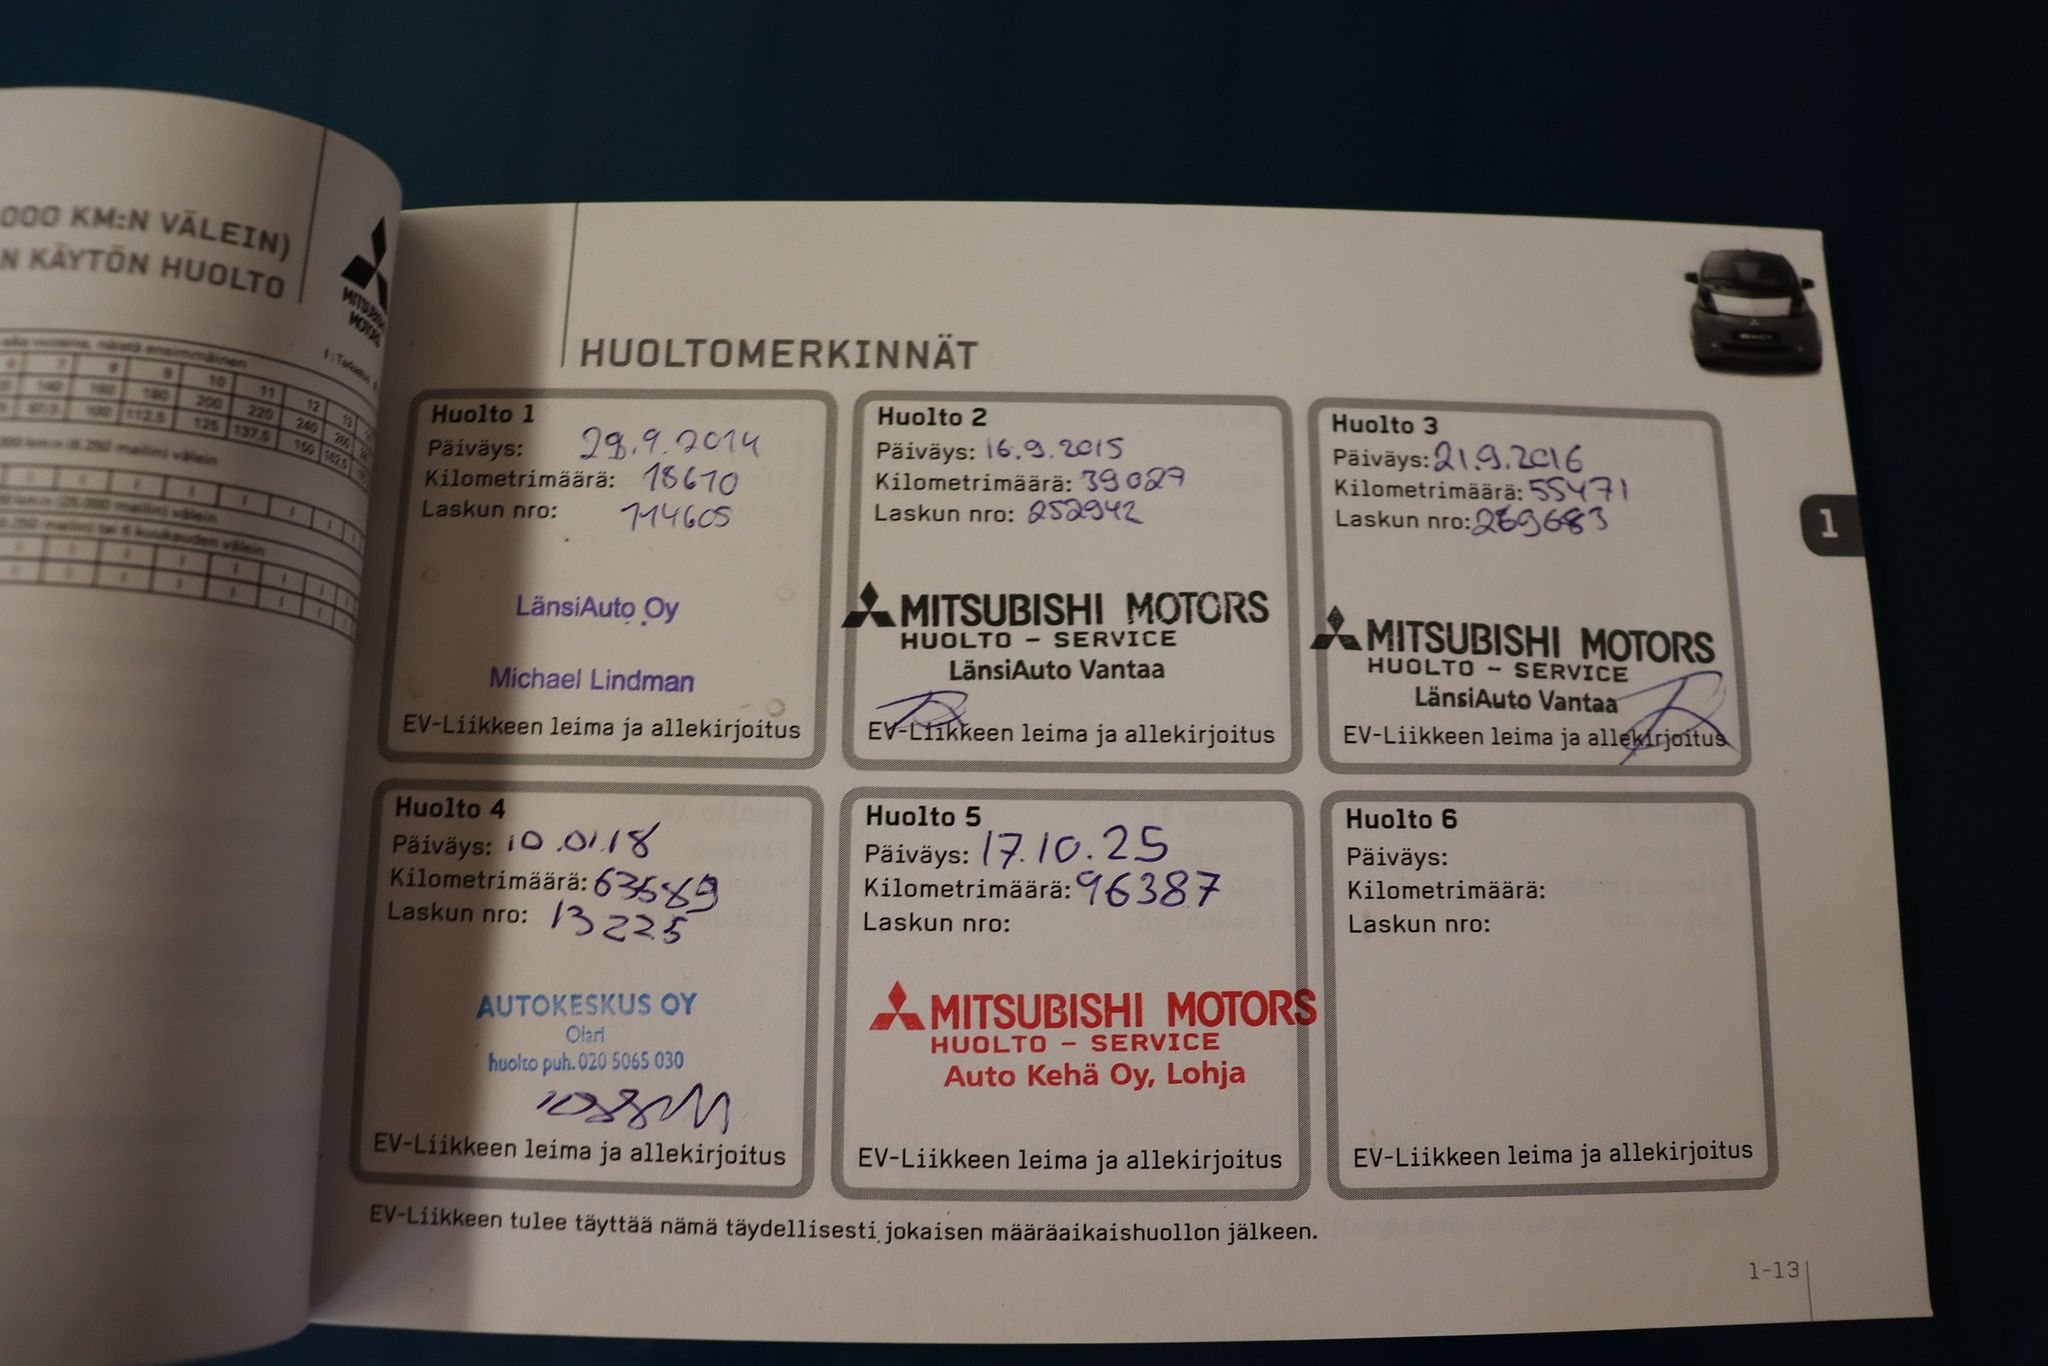 000 KM:N VÄLEIN)
N KÄYTÖN HUOLTO
MITSUBISHI
MOTORS
7 8 9 10 11 12 13
140 160 180 200 220 240 260
87.5 100 112.5 125 137.5 150 162.5
HUOLTOMERKINNÄT
Huolto 1
Päiväys: 29.9.2014
Kilometrimäärä: 18610
Laskun nro: 114605
LänsiAuto Oy
Michael Lindman
EV-Liikkeen leima ja allekirjoitus
Huolto 2
Päiväys: 16.9.2015
Kilometrimäärä: 39027
Laskun nro: 252942
MITSUBISHI MOTORS
HUOLTO - SERVICE
LänsiAuto Vantaa
EV-Liikkeen leima ja allekirjoitus
Huolto 3
Päiväys: 21.9.2016
Kilometrimäärä: 55471
Laskun nro: 269683
MITSUBISHI MOTORS
HUOLTO - SERVICE
LänsiAuto Vantaa
EV-Liikkeen leima ja allekirjoitus
1
Huolto 4
Päiväys: 10.01.18
Kilometrimäärä: 63589
Laskun nro: 13225
AUTOKESKUS OY
Olari
huolto puh. 020 5065 030
EV-Liikkeen leima ja allekirjoitus
Huolto 5
Päiväys: 17.10.25
Kilometrimäärä: 96387
Laskun nro:
MITSUBISHI MOTORS
HUOLTO - SERVICE
Auto Kehä Oy, Lohja
EV-Liikkeen leima ja allekirjoitus
Huolto 6
Päiväys:
Kilometrimäärä:
Laskun nro:
EV-Liikkeen leima ja allekirjoitus
EV-Liikkeen tulee täyttää nämä täydellisesti jokaisen määräaikaishuollon jälkeen.
1-13